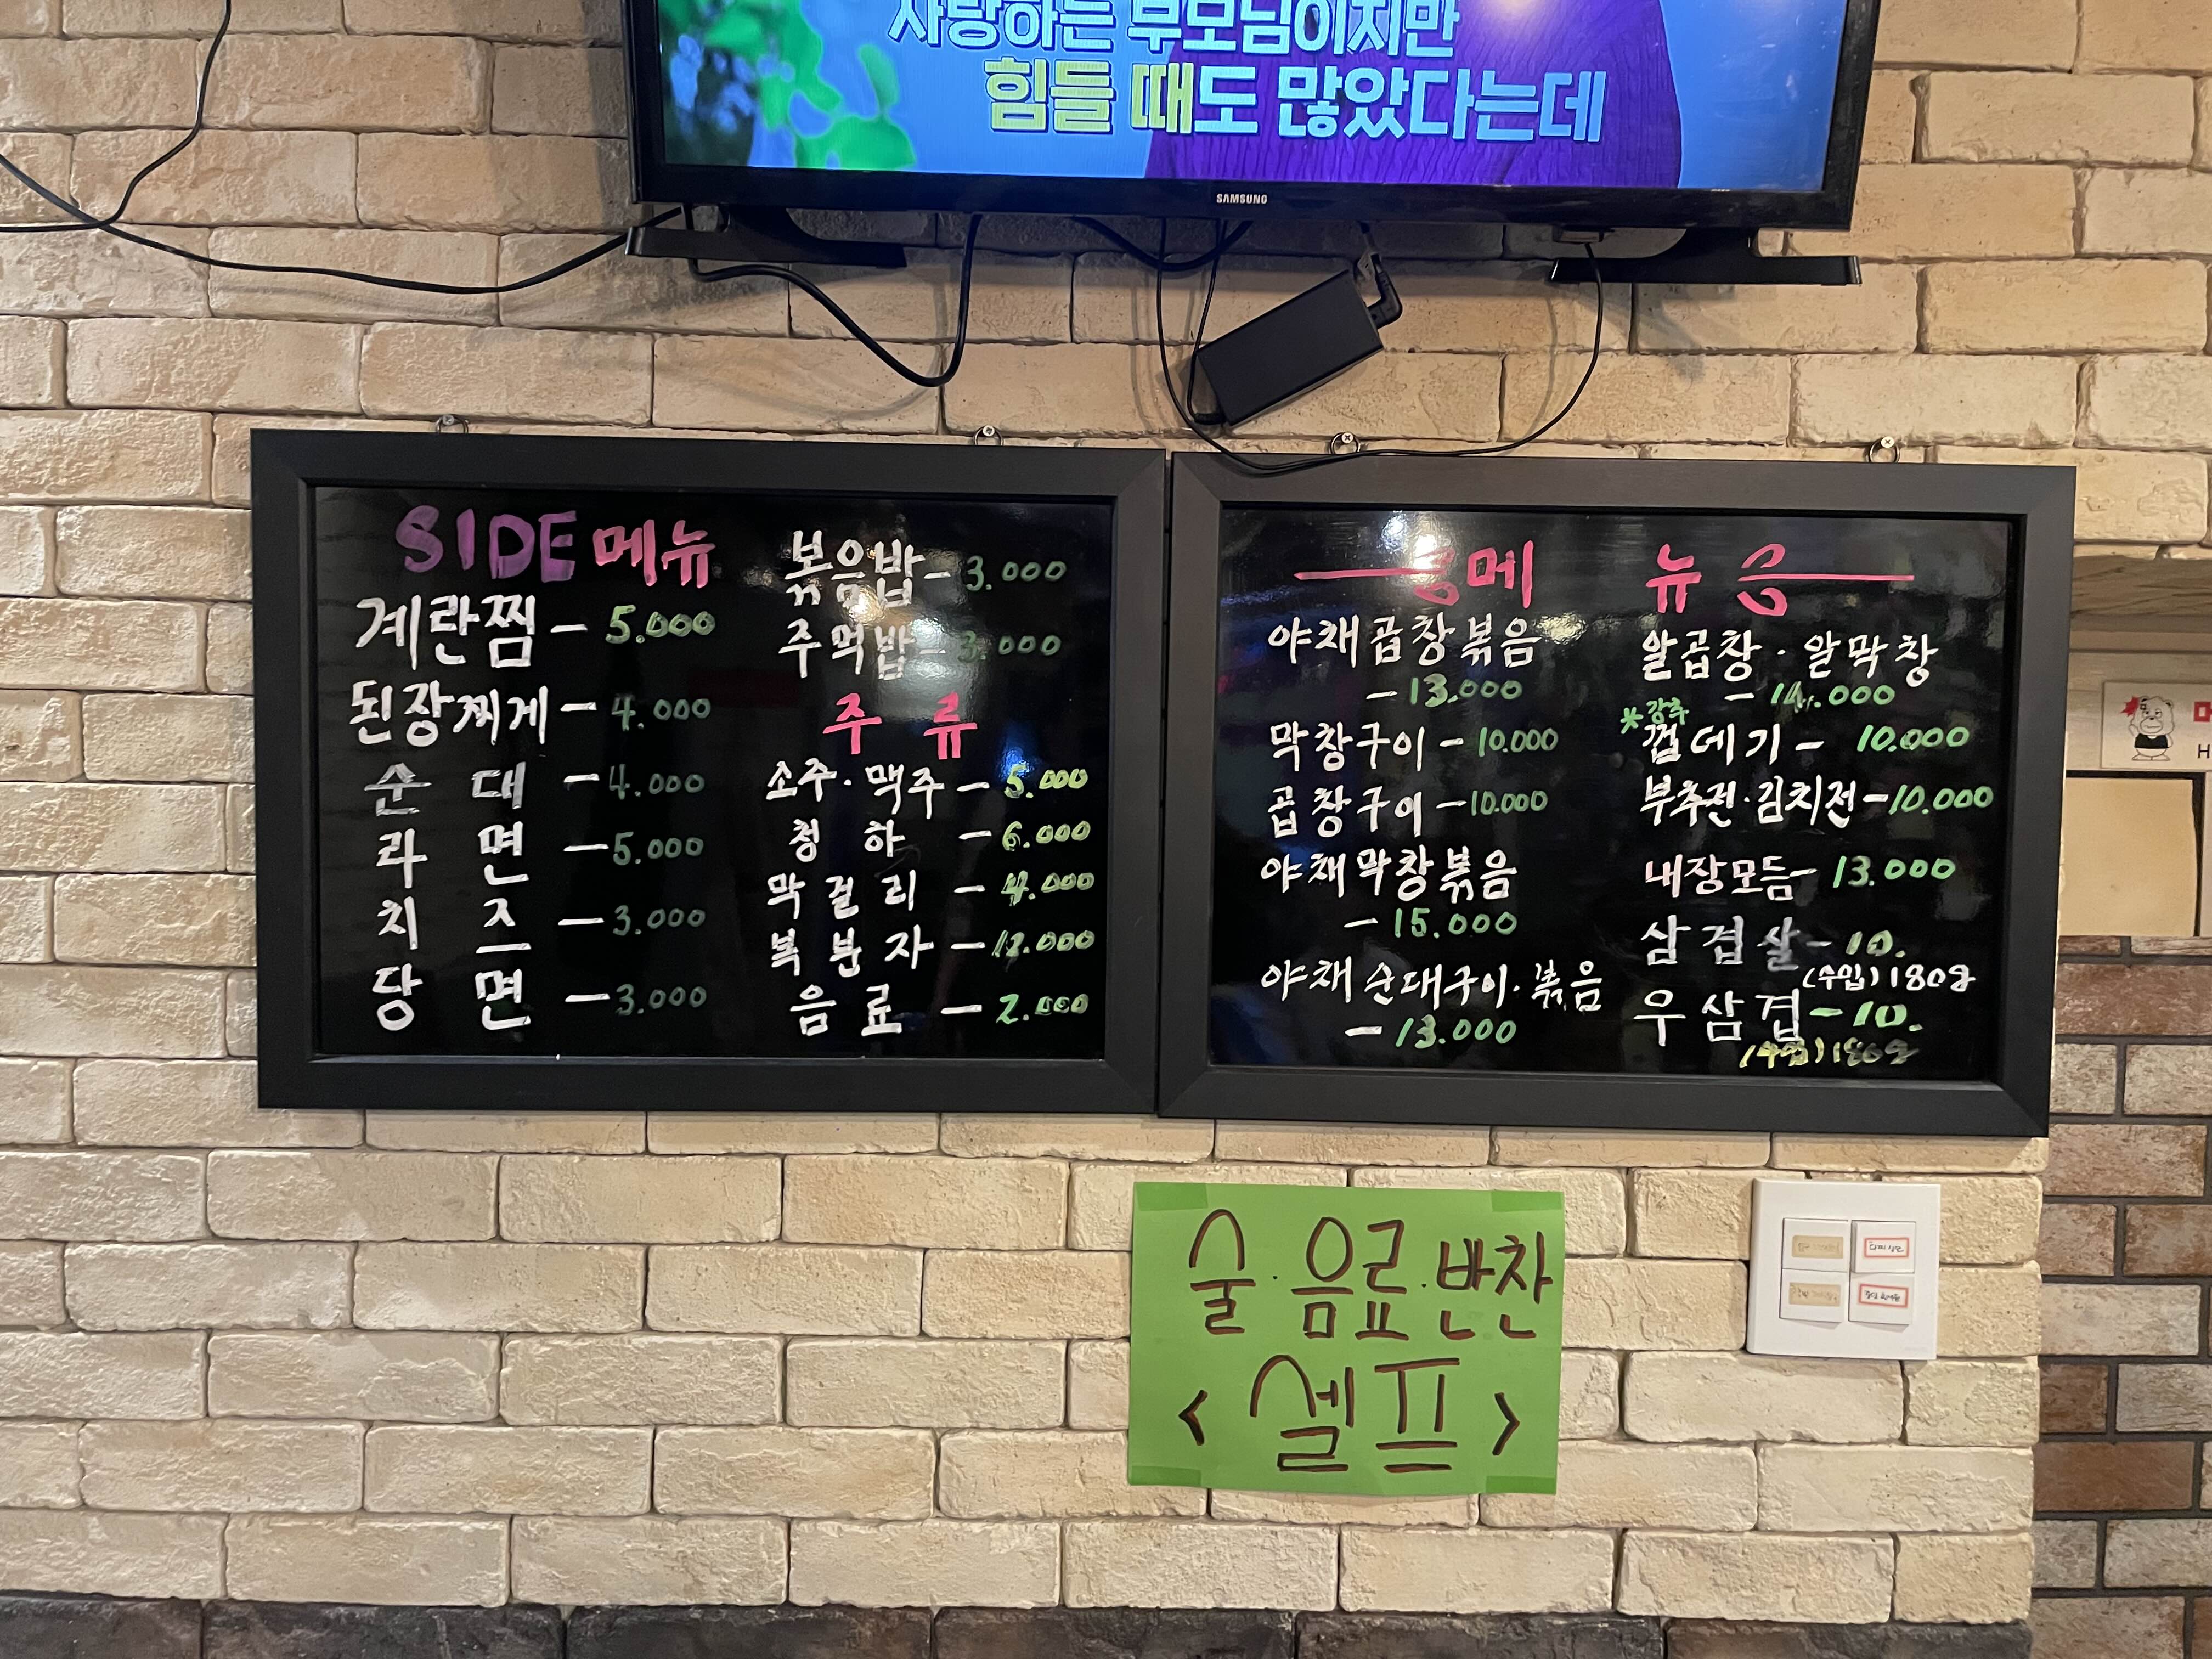 사랑하는 부모님이지만
힘들 때도 많았다는데
SAMSUNG
SIDE 메뉴
계란찜 - 5.000
된장찌게 - 4.000
순대 - 4.000
라면 - 5.000
치즈 - 3.000
당면 - 3.000
볶음밥 - 3.000
주먹밥 - 3.000
주류
소주·맥주 - 5.000
청하 - 6.000
막걸리 - 4.000
복분자 - 12.000
음료 - 2.000
메뉴
야채곱창볶음
- 13.000
막창구이 - 10.000
곱창구이 - 10.000
야채막창볶음
- 15.000
야채순대구이·볶음
- 13.000
알곱창·알막창
- 14.000
*강추
껍데기 - 10.000
부추전·김치전 - 10.000
내장모듬 - 13.000
삼겹살 - 10.
(수입) 180g
우삼겹 - 10.
(수입) 180g
술·음료·반찬
<셀프>